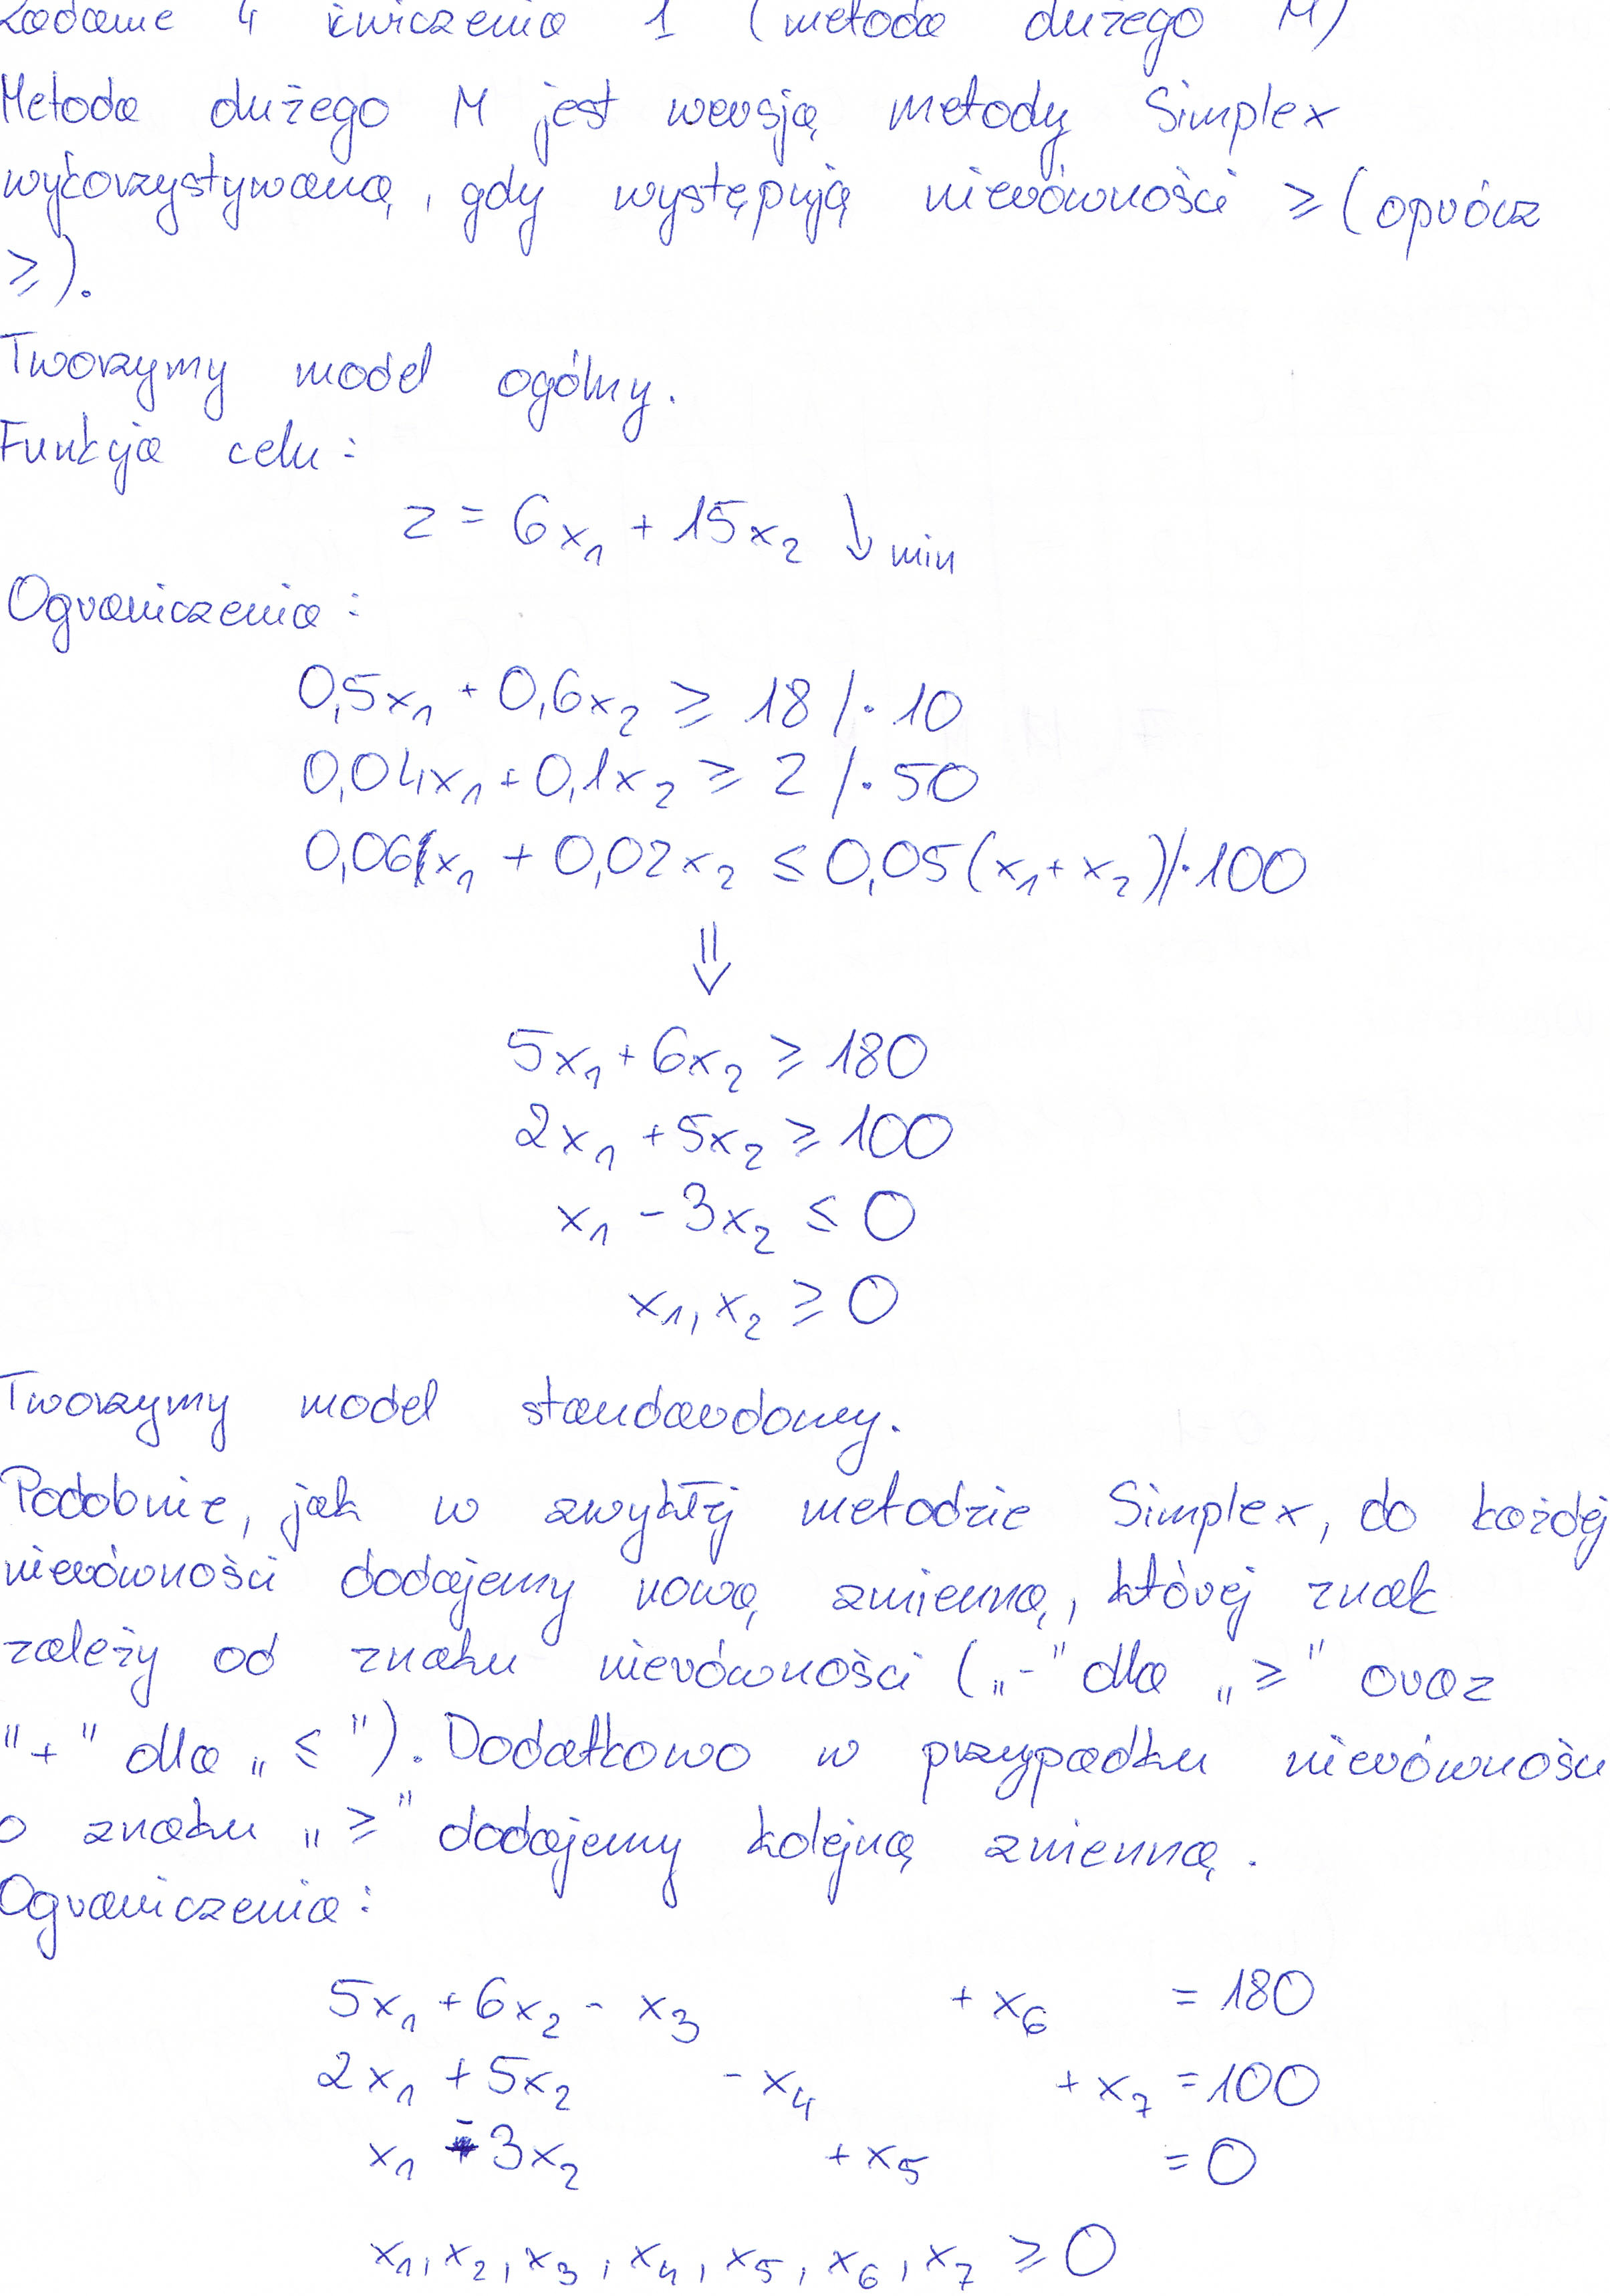 Zadanie 4 ćwiczenia 1 (metoda dużego M)
Metoda dużego M jest wersją metody Simplex
wykorzystywaną, gdy występują nierówności ≥ (oprócz
≥).
Tworzymy model ogólny.
Funkcja celu:
z = 6x₁ + 15x₂ ↓ min
Ograniczenia:
0,5x₁ + 0,6x₂ ≥ 18 /· 10
0,04x₁ + 0,1x₂ ≥ 2 /· 50
0,06x₁ + 0,02x₂ ≤ 0,05(x₁ + x₂) /· 100
⇓
5x₁ + 6x₂ ≥ 180
2x₁ + 5x₂ ≥ 100
x₁ - 3x₂ ≤ 0
x₁, x₂ ≥ 0
Tworzymy model standardowy.
Podobnie, jak w zwykłej metodzie Simplex, do każdej
nierówności dodajemy nową zmienną, której znak
zależy od znaku nierówności („-" dla „≥" oraz
"+" dla „≤"). Dodatkowo w przypadku nierówności
o znaku „≥" dodajemy kolejną zmienną.
Ograniczenia:
5x₁ + 6x₂ - x₃ + x₆ = 180
2x₁ + 5x₂ - x₄ + x₇ = 100
x₁ - 3x₂ + x₅ = 0
x₁, x₂, x₃, x₄, x₅, x₆, x₇ ≥ 0